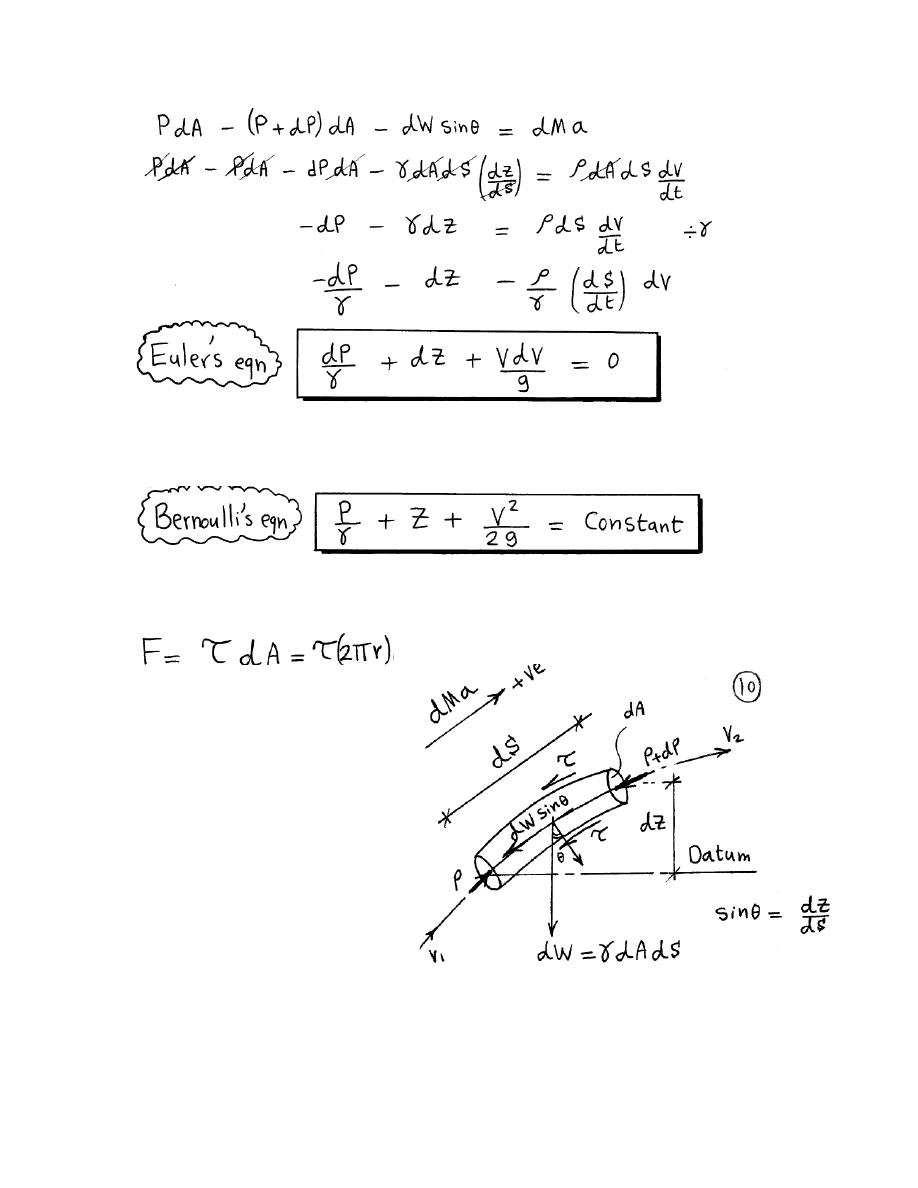 PdA - (P+dP)dA - dW sinθ = dMa
PdA - PdA - dPdA - γdAdS (dz/dS) = ρdAdS dv/dt
-dP - γdz = ρdS dv/dt ÷γ
-dP/γ - dz - ρ/γ (dS/dt) dv
Euler's eqn dP/γ + dz + VdV/g = 0
Bernoulli's eqn P/γ + Z + V²/2g = Constant
F= τ dA = τ(2πr)
dMa +ve
10
dS
dA
τ
P+dP
V2
dW sinθ
τ
dz
θ
P
Datum
sinθ = dz/dS
V1
dW = γdAdS